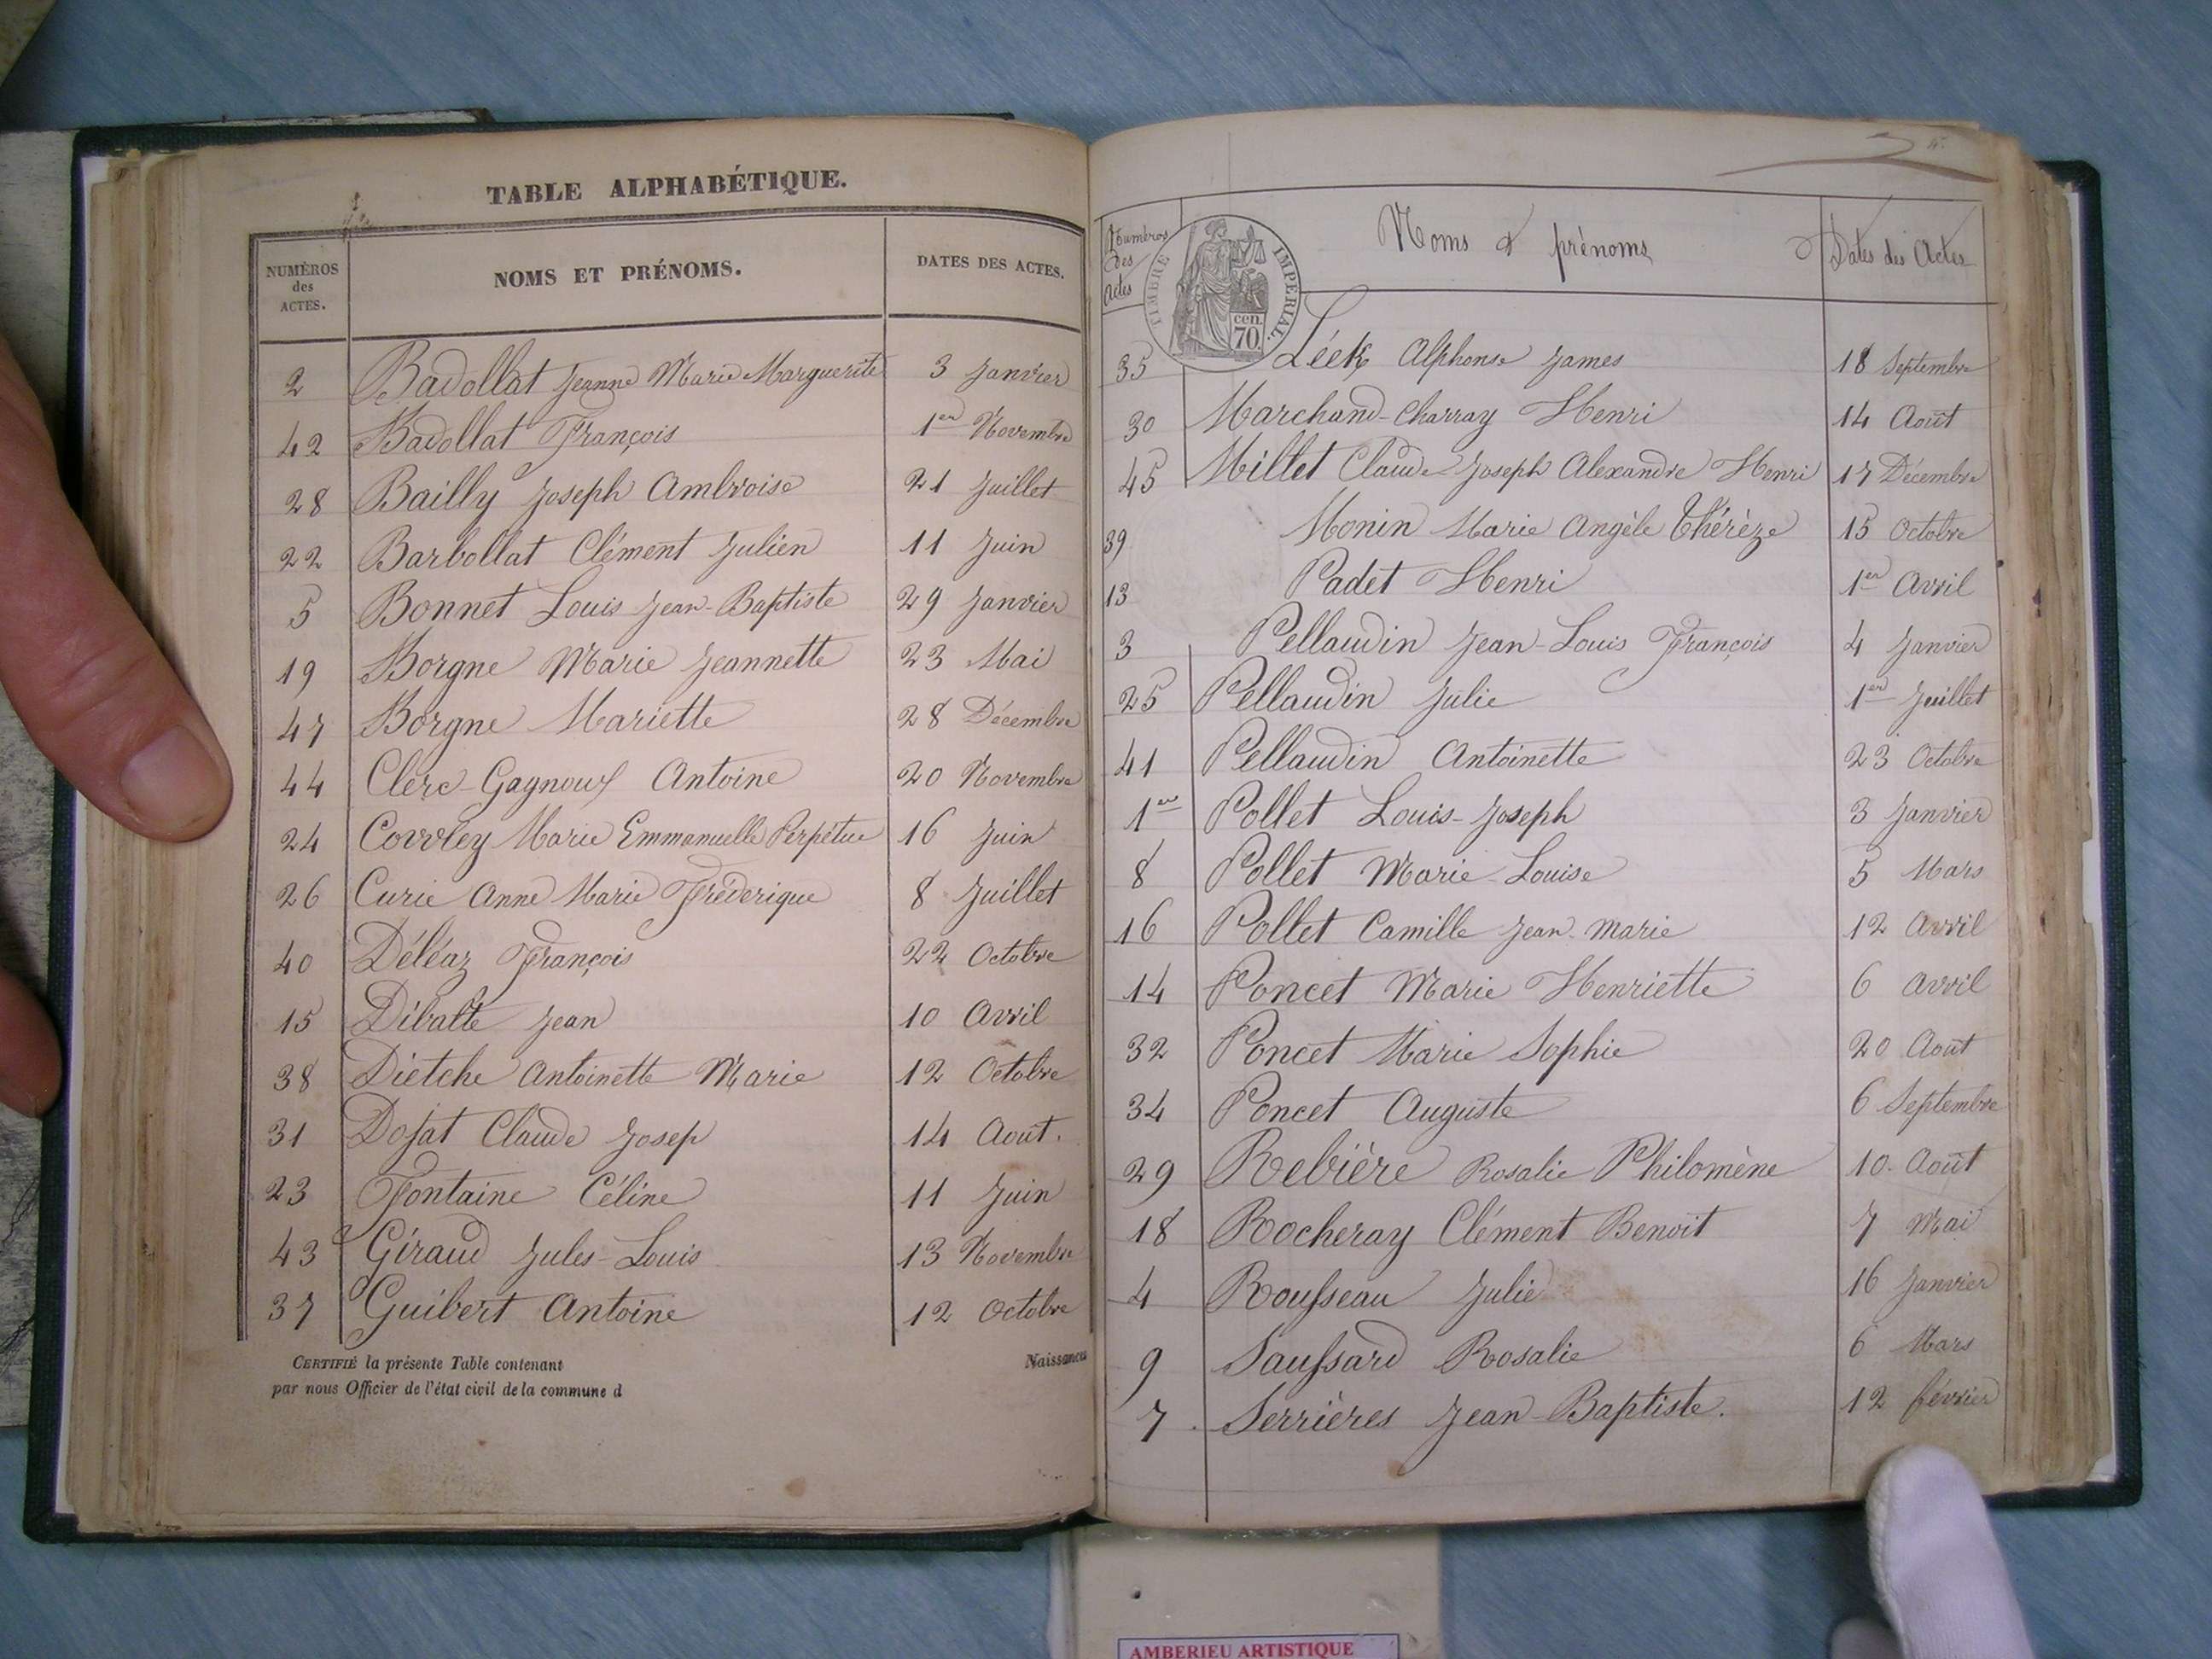 TABLE ALPHABÉTIQUE.
NUMÉROS des ACTES. NOMS ET PRÉNOMS. DATES DES ACTES.
2 Badollat Jeanne Marie Marguerite 3 Janvier
42 Badollat François 1er Novembre
28 Bailly Joseph Ambroise 21 Juillet
22 Barbollat Clément Julien 11 Juin
5 Bonnet Louis Jean-Baptiste 29 Janvier
19 Borgne Marie Jeannette 23 Mai
47 Borgne Mariette 28 Décembre
44 Clerc-Gagnoux Antoine 20 Novembre
24 Marie Emmanuelle Perpétue 16 Juin
26 Curie Anne Marie Fréderique 8 Juillet
40 Déléaz François 22 Octobre
15 Jean 10 Avril
38 Dietche Antoinette Marie 12 Octobre
31 Dojat Claude Josep 14 Aout.
23 Fontaine Céline 11 Juin
43 Giraud Jules-Louis 13 Novembre
37 Guibert Antoine 12 Octobre
CERTIFIÉ la présente Table contenant Naissances
par nous Officier de l'état civil de la commune d
Numéros des Actes Noms & prénoms Dates des Actes
TIMBRE IMPÉRIAL.
cen. 70.
35 Léek Alphonse James 18 Septembre
30 Marchand-Charray Henri 14 Août
45 Millet Claude Joseph Alexandre Henri 17 Décembre
39 Monin Marie Angèle Thérèze 15 Octobre
13 Padet Henri 1er Avril
3 Pellaudin Jean-Louis François 4 Janvier
25 Pellaudin Julie 1er Juillet
41 Pellaudin Antoinette 23 Octobre
1er Pollet Louis-Joseph 3 Janvier
8 Pollet Marie-Louise 5 Mars
16 Pollet Camille Jean-Marie 12 Avril
14 Poncet Marie Henriette 6 Avril
32 Poncet Marie Sophie 20 Aout
34 Poncet Auguste 6 Septembre
29 Rebière Rosalie Philomène 10 Août
18 Rocheray Clément Benoit 7 Mai
4 Rousseau Julie 16 Janvier
9 Saussard Rosalie 6 Mars
7 Serrières Jean-Baptiste. 12 février
AMBERIEU ARTISTIQUE